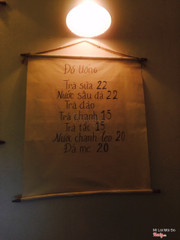 Đồ Uống
Trà sữa 22
Nước sấu đá 22
Trà đào
Trà chanh 15
Trà tắc 15
Nước chanh leo 20
Đá me 20